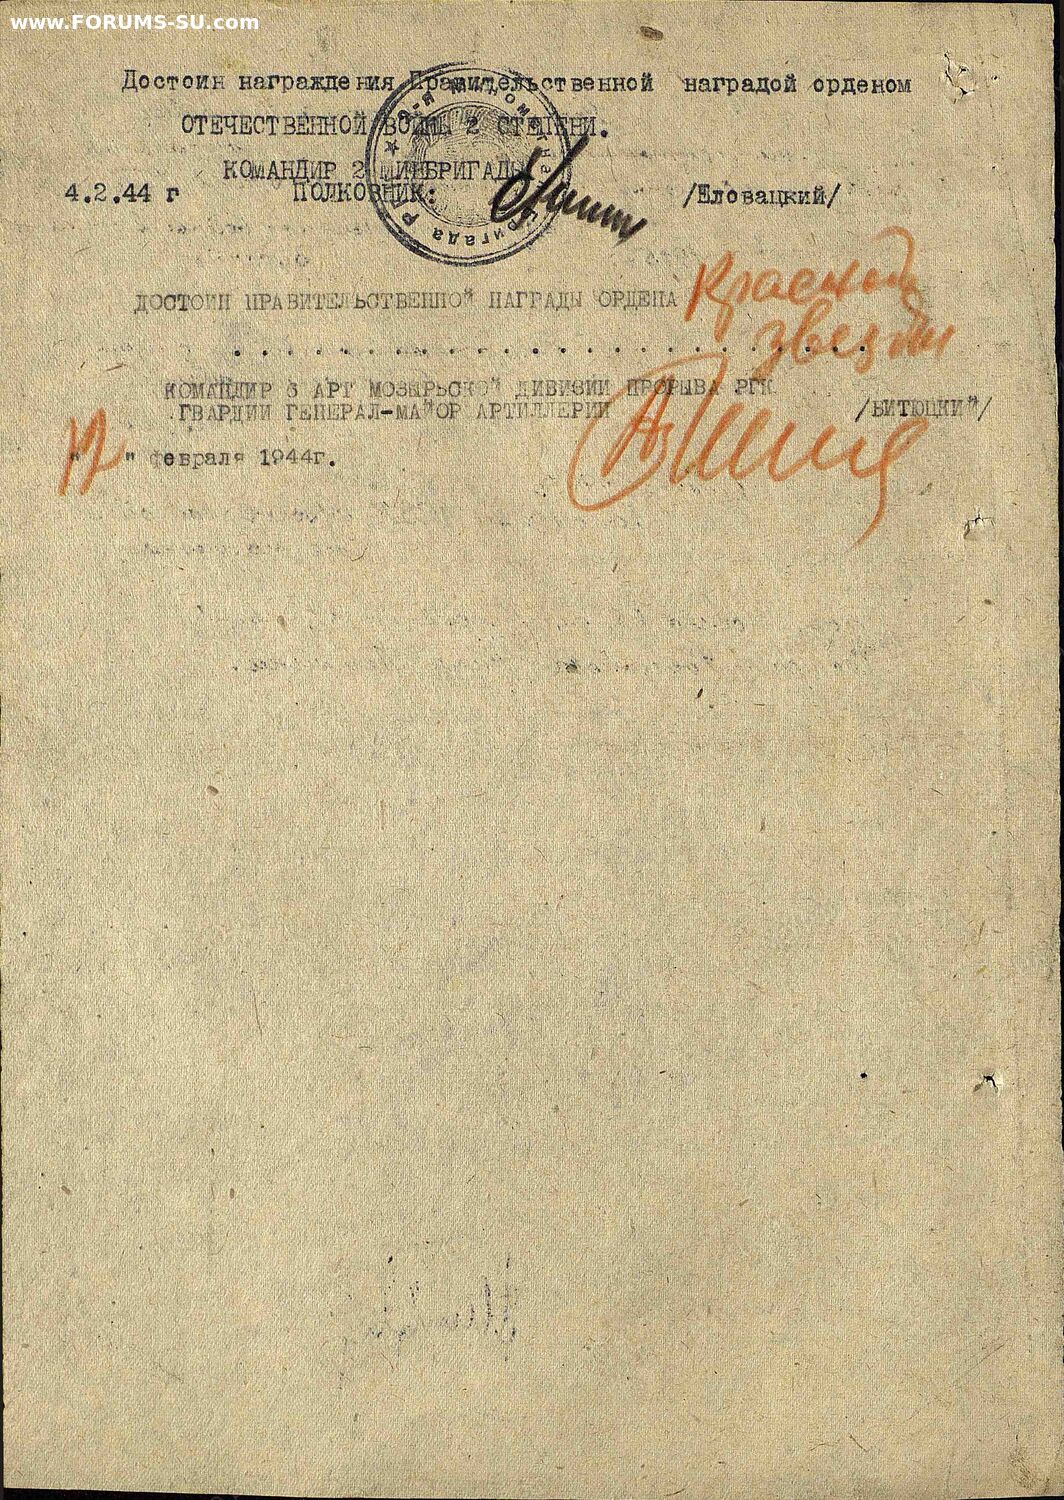 www.FORUMS-SU.com
Достоин награждения Правительственной наградой орденом
ОТЕЧЕСТВЕННОЙ ВОЙНЫ 2 СТЕПЕНИ.
КОМАНДИР 2 МИНБРИГАДЫ
4.2.44 г ПОЛКОВНИК: /Еловацкий/
ДОСТОИН ПРАВИТЕЛЬСТВЕННОЙ НАГРАДЫ ОРДЕНА Красной
звезды
КОМАНДИР 6 АРТ МОЗЫРЬСКОЙ ДИВИЗИИ ПРОРЫВА РГК
ГВАРДИИ ГЕНЕРАЛ-МАЙОР АРТИЛЛЕРИИ /БИТЮЦКИЙ/
"12" февраля 1944г.